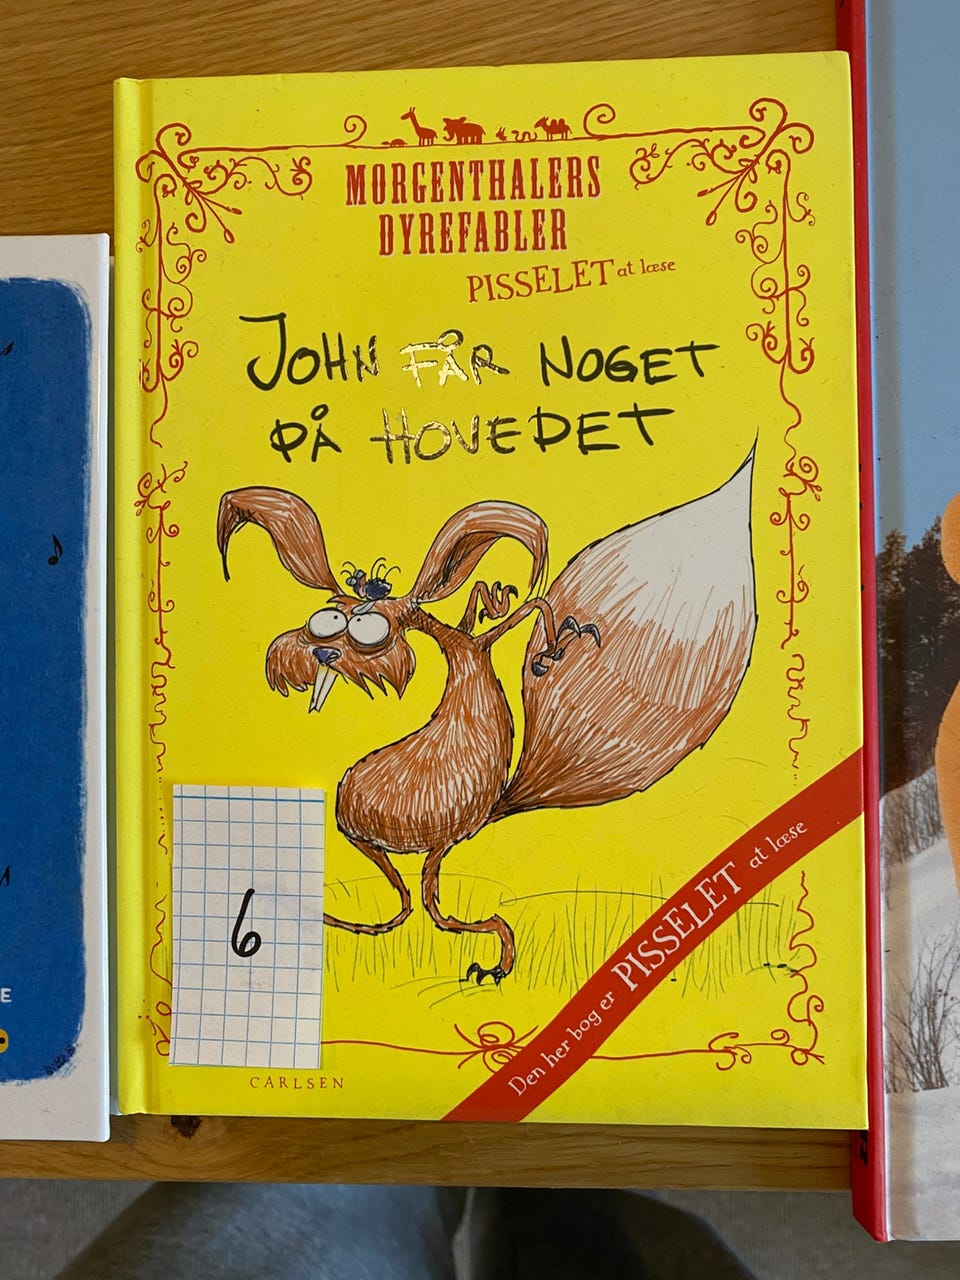 MORGENTHALERS
DYREFABLER
PISSELET at læse
JOHN FÅR NOGET
PÅ HOVEDET
6
Den her bog er PISSELET at læse
CARLSEN
E